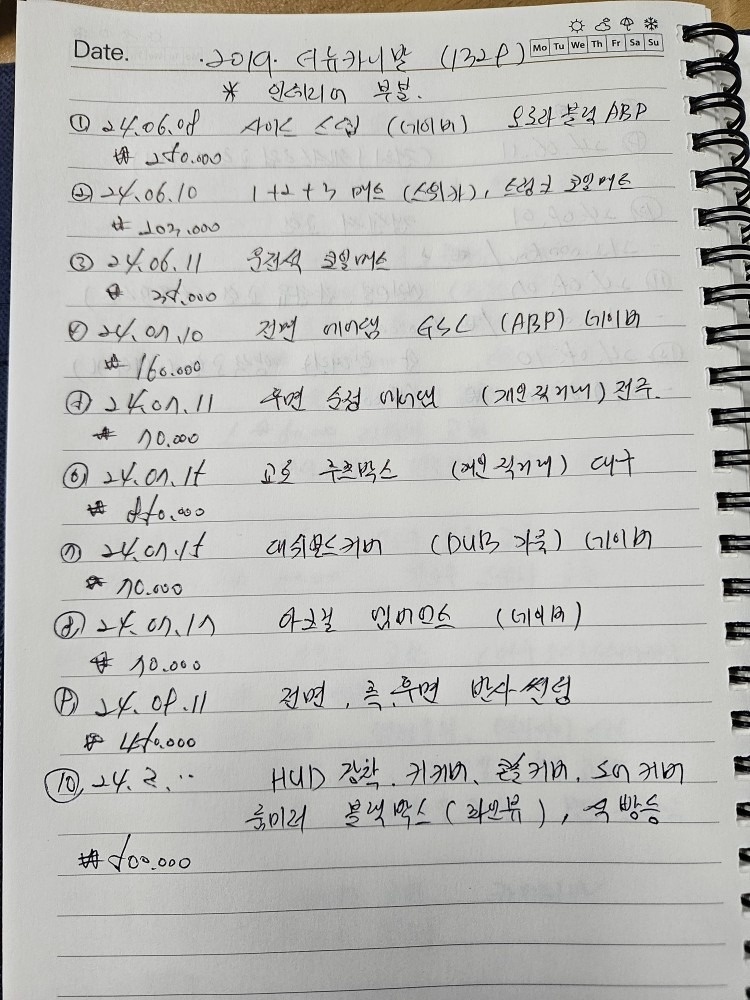 Date. . 2019. 더뉴카니발 (132,)
Mo Tu We Th Fr Sa Su
* 인테리어 부분.
① 24.06.08 사이드 스텝 (네이버) 오로라블랙 ABP
₩ 250.000
② 24.06.10 1+2+3 매트 (스위카), 트렁크 코일매트
₩ 203.000
③ 24.06.11 운전석 코일매트
₩ 28.000
④ 24.07.10 전면 에어댐 GSL (ABP) 네이버
₩ 160.000
⑤ 24.07.11 후면 순정 에어댐 (개인직거래) 전주.
₩ 70.000
⑥ 24.07.15 고로 루프박스 (개인직거래) 대구
₩ 850.000
⑦ 24.07.15 대쉬보드커버 (DUB 가죽) 네이버
₩ 70.000
⑧ 24.07.17 아크릴 엠비언트 (네이버)
₩ 70.000
⑨ 24.08.11 전면, 측,후면 반사썬팅
₩ 450.000
⑩ 24. HUD 장착, 키커버, 콘솔커버, 도어커버
룸미러 블랙박스 (파인뷰), 방음
₩ 500.000